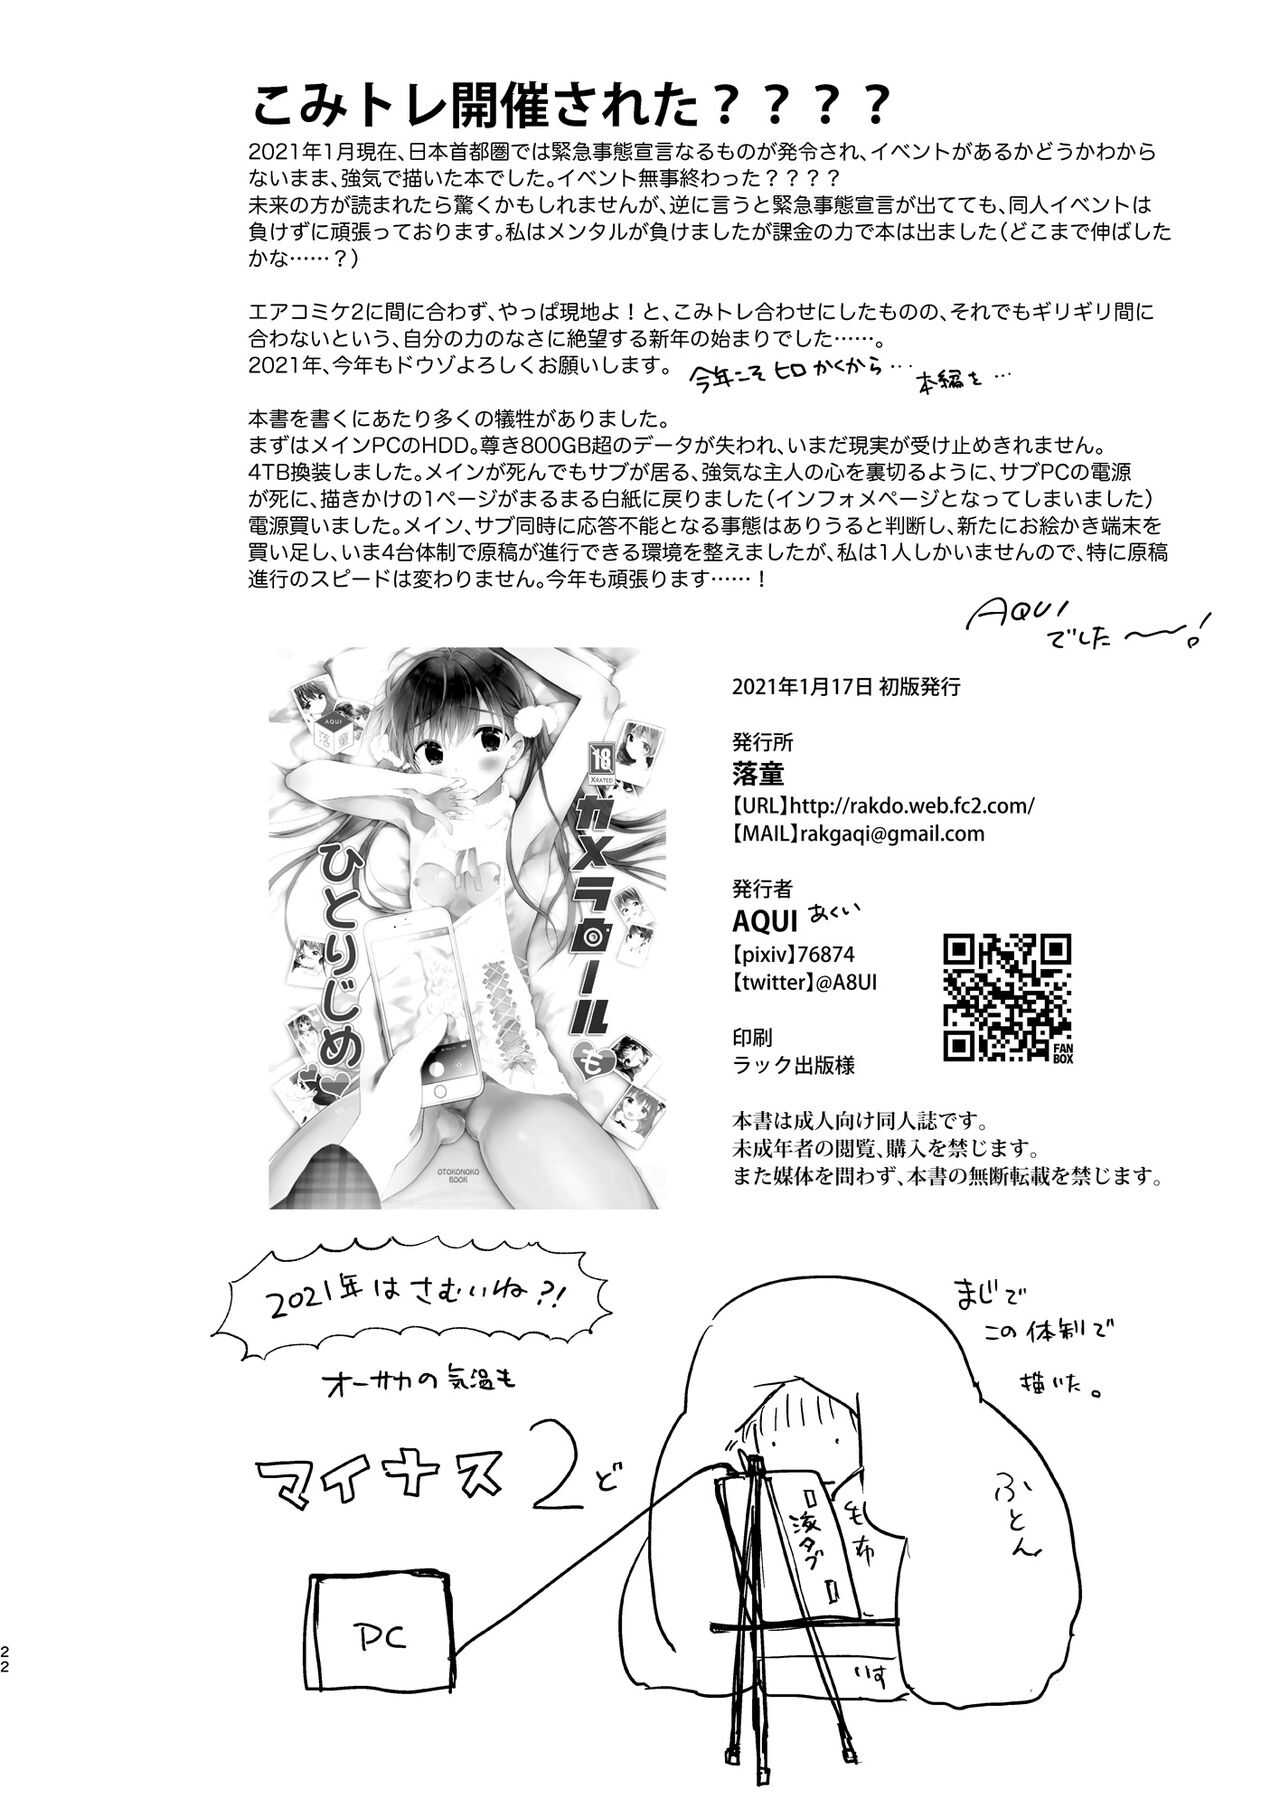 こみトレ開催された？？？？
2021年1月現在、日本首都圏では緊急事態宣言なるものが発令され、イベントがあるかどうかわから
ないまま、強気で描いた本でした。イベント無事終わった？？？？
未来の方が読まれたら驚くかもしれませんが、逆に言うと緊急事態宣言が出てても、同人イベントは
負けずに頑張っております。私はメンタルが負けましたが課金の力で本は出ました（どこまで伸ばした
かな……？）
エアコミケ2に間に合わず、やっぱ現地よ！と、こみトレ合わせにしたものの、それでもギリギリ間に
合わないという、自分の力のなさに絶望する新年の始まりでした……。
2021年、今年もドウゾよろしくお願いします。
今年こそヒロかくから…本編を…
本書を書くにあたり多くの犠牲がありました。
まずはメインPCのHDD。尊き800GB超のデータが失われ、いまだ現実が受け止めきれません。
4TB換装しました。メインが死んでもサブが居る、強気な主人の心を裏切るように、サブPCの電源
が死に、描きかけの1ページがまるまる白紙に戻りました（インフォメページとなってしまいました）
電源買いました。メイン、サブ同時に応答不能となる事態はありうると判断し、新たにお絵かき端末を
買い足し、いま4台体制で原稿が進行できる環境を整えましたが、私は1人しかいませんので、特に原稿
進行のスピードは変わりません。今年も頑張ります……！
AQUI
でした〜！
AQUI
落童
18
XRATED
カメラロール
も
ひとりじめ
OTOKONOKO
BOOK
2021年1月17日 初版発行
発行所
落童
【URL】http://rakdo.web.fc2.com/
【MAIL】rakgaqi@gmail.com
発行者
AQUI あくい
【pixiv】76874
【twitter】@A8UI
FAN
BOX
印刷
ラック出版様
本書は成人向け同人誌です。
未成年者の閲覧、購入を禁じます。
また媒体を問わず、本書の無断転載を禁じます。
2021年はさむいね?!
オーサカの気温も
マイナス2ど
まじで
この体制で
描いた。
ふとん
毛布
液タブ
いす
PC
22